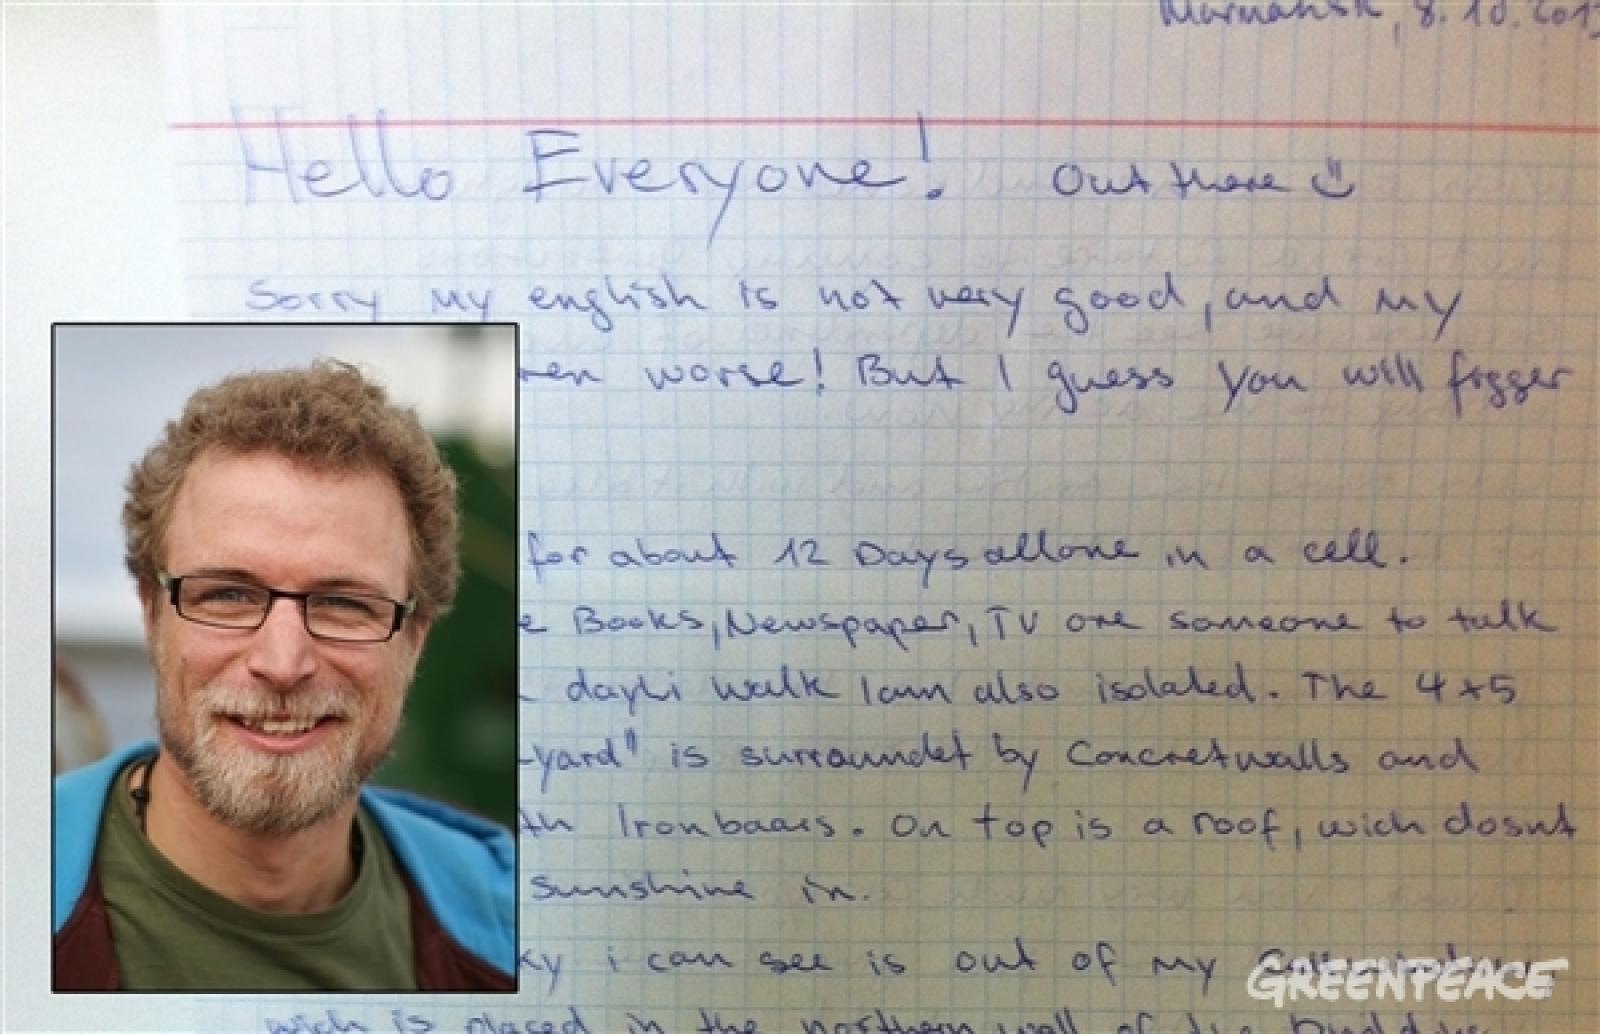 Murmansk, 8.10.2013
Hello Everyone! Out there
Sorry my english is not very good, and my
worse! But I guess you will figger
for about 12 Days allone in a cell.
Books, Newspaper, TV ore someone to talk
dayli walk I am also isolated. The 4x5
-yard" is surroundet by Concretwalls and
Ironbaars. On top is a roof, wich dosnt
sunshine in.
i can see is out of my
wich is placed in the northern wall of the
GREENPEACE